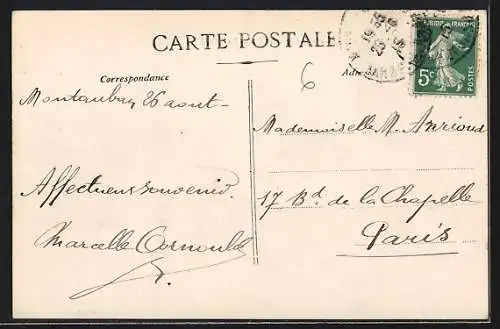 CARTE POSTALE
Correspondance
Montauban 26 aout
Affectueux souvenir.
Marcelle
6
REPUBLIQUE FRANÇAISE
5c
POSTES
Mademoiselle M.
17 Bd. de la Chapelle
Paris